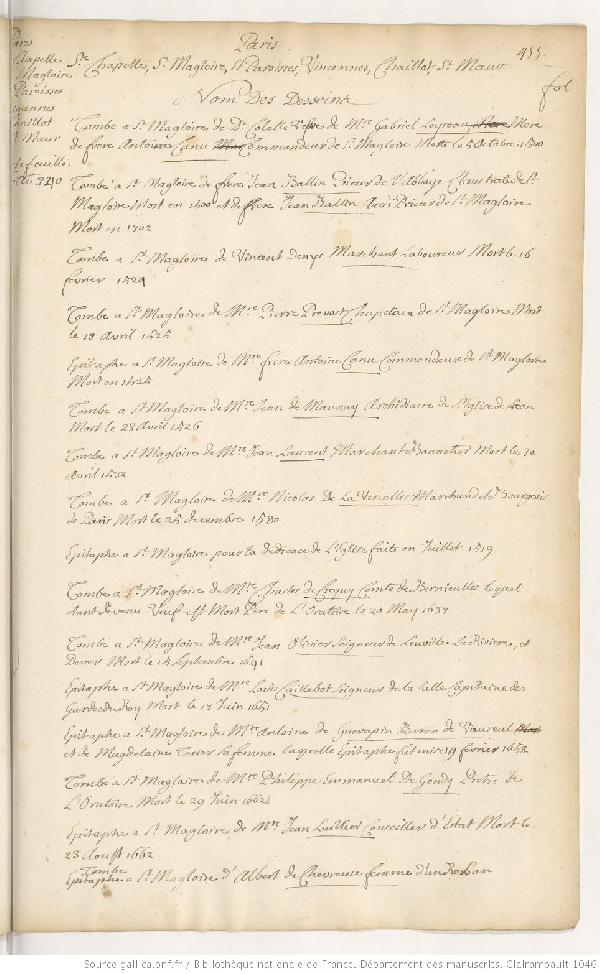 Paris
Chapelle
Magloire
Paroisses
Vincennes
Chaillot
St Maur
Paris
455
Ste Chapelle, St Magloire, St Paroisses, Vincennes, Chaillot, St Maur
fol
Nom Des Desseins
Tombe a St Magloire de De Colette de Mre Gabriel Mere
de frere Antoine Canu Commandeur de St Magloire Morte le 5 Octobre 1500
Tombe a St Magloire de frere Jean Ballin Prieur de L'Abbaye Claustrale de St
Magloire Mort en 1400 et de frere Jean Ballin Prieur de St Magloire
Mort en 1702
Tombe a St Magloire de Vincent Denys Marchant Laboureur Mort le 16
fevrier 1524
Tombe a St Magloire de Mre Pierre Provost Chapelain de St Magloire Mort
le 18 Avril 1525
Epitaphe a St Magloire de Mre frere Antoine Canu Commandeur de St Magloire
Mort en 1525
Tombe a St Magloire de Mre Jean de Archidiacre de L'Eglise de Leon
Mort le 28 Avril 1526
Tombe a St Magloire de Mre Jean Laurent Marchant Bonnetier Mort le 30
Avril 1532
Tombe a St Magloire de Mre Nicolas de La Marchand et Bourgeois
de Paris Mort le 25 decembre 1580
Epitaphe a St Magloire pour la dedicace de L'Eglise faite en Juillet 1519
Tombe a St Magloire de Mre Charles de Crequy Comte de Bernieulles lequel
etant devenu Veuf est Mort Pere de L'Oratoire le 20 May 1637
Tombe a St Magloire de Mre Jean Olivier Seigneur de Leuville La Riviere, et
Mort le 15 Septembre 1641
Epitaphe a St Magloire de Mre Louis Caillebot Seigneur de la Salle Capitaine des
Gardes du Roy Mort le 13 Juin 1651
Epitaphe a St Magloire de Mre Antoine de Guerapin Baron de Vaureal
et de Magdelaine sa femme laquelle Epitaphe fut mise 19 fevrier 1652
Tombe a St Magloire de Mre Philippe Emmanuel De Gondy Pretre de
L'Oratoire Mort le 29 Juin 1662
Epitaphe a St Magloire de Mre Jean Luillier Conseiller d'Estat Mort le
23 Aoust 1662
Tombe
Epitaphe a St Magloire d'Albert de Chevreuse femme d'un Rohan
Source gallica.bnf.fr / Bibliothèque nationale de France. Département des manuscrits. Clairambault 1046